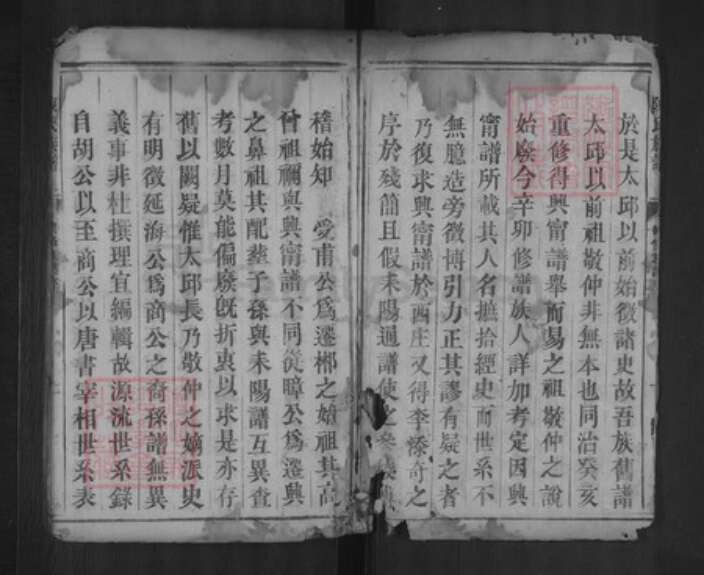 於是太邱以前始徵諸史故吾族舊譜
太邱以前祖敬仲非無本也同治癸亥
重修得興甯譜舉而易之祖敬仲之說
始廢今辛卯修譜族人詳加考定因興
甯譜所載其人名摭拾經史而世系不
無臆造旁徵博引力正其謬有疑之者
乃復求興甯譜於西庄又得李添奇之
序於殘簡且假耒陽通譜使之
稽始知 愛甫公為遷郴之始祖其高
曾祖禰與興甯譜不同從暲公為遷興
之鼻祖其配塟子孫與耒陽譜互異查
考數月莫能偏廢旣折衷以求是亦存
舊以闕疑惟太邱長乃敬仲之嫡派史
有明徵延海公為商公之裔孫譜無異
義事非杜撰理宜編輯故源流世系錄
自胡公以至商公以唐書宰相世系表